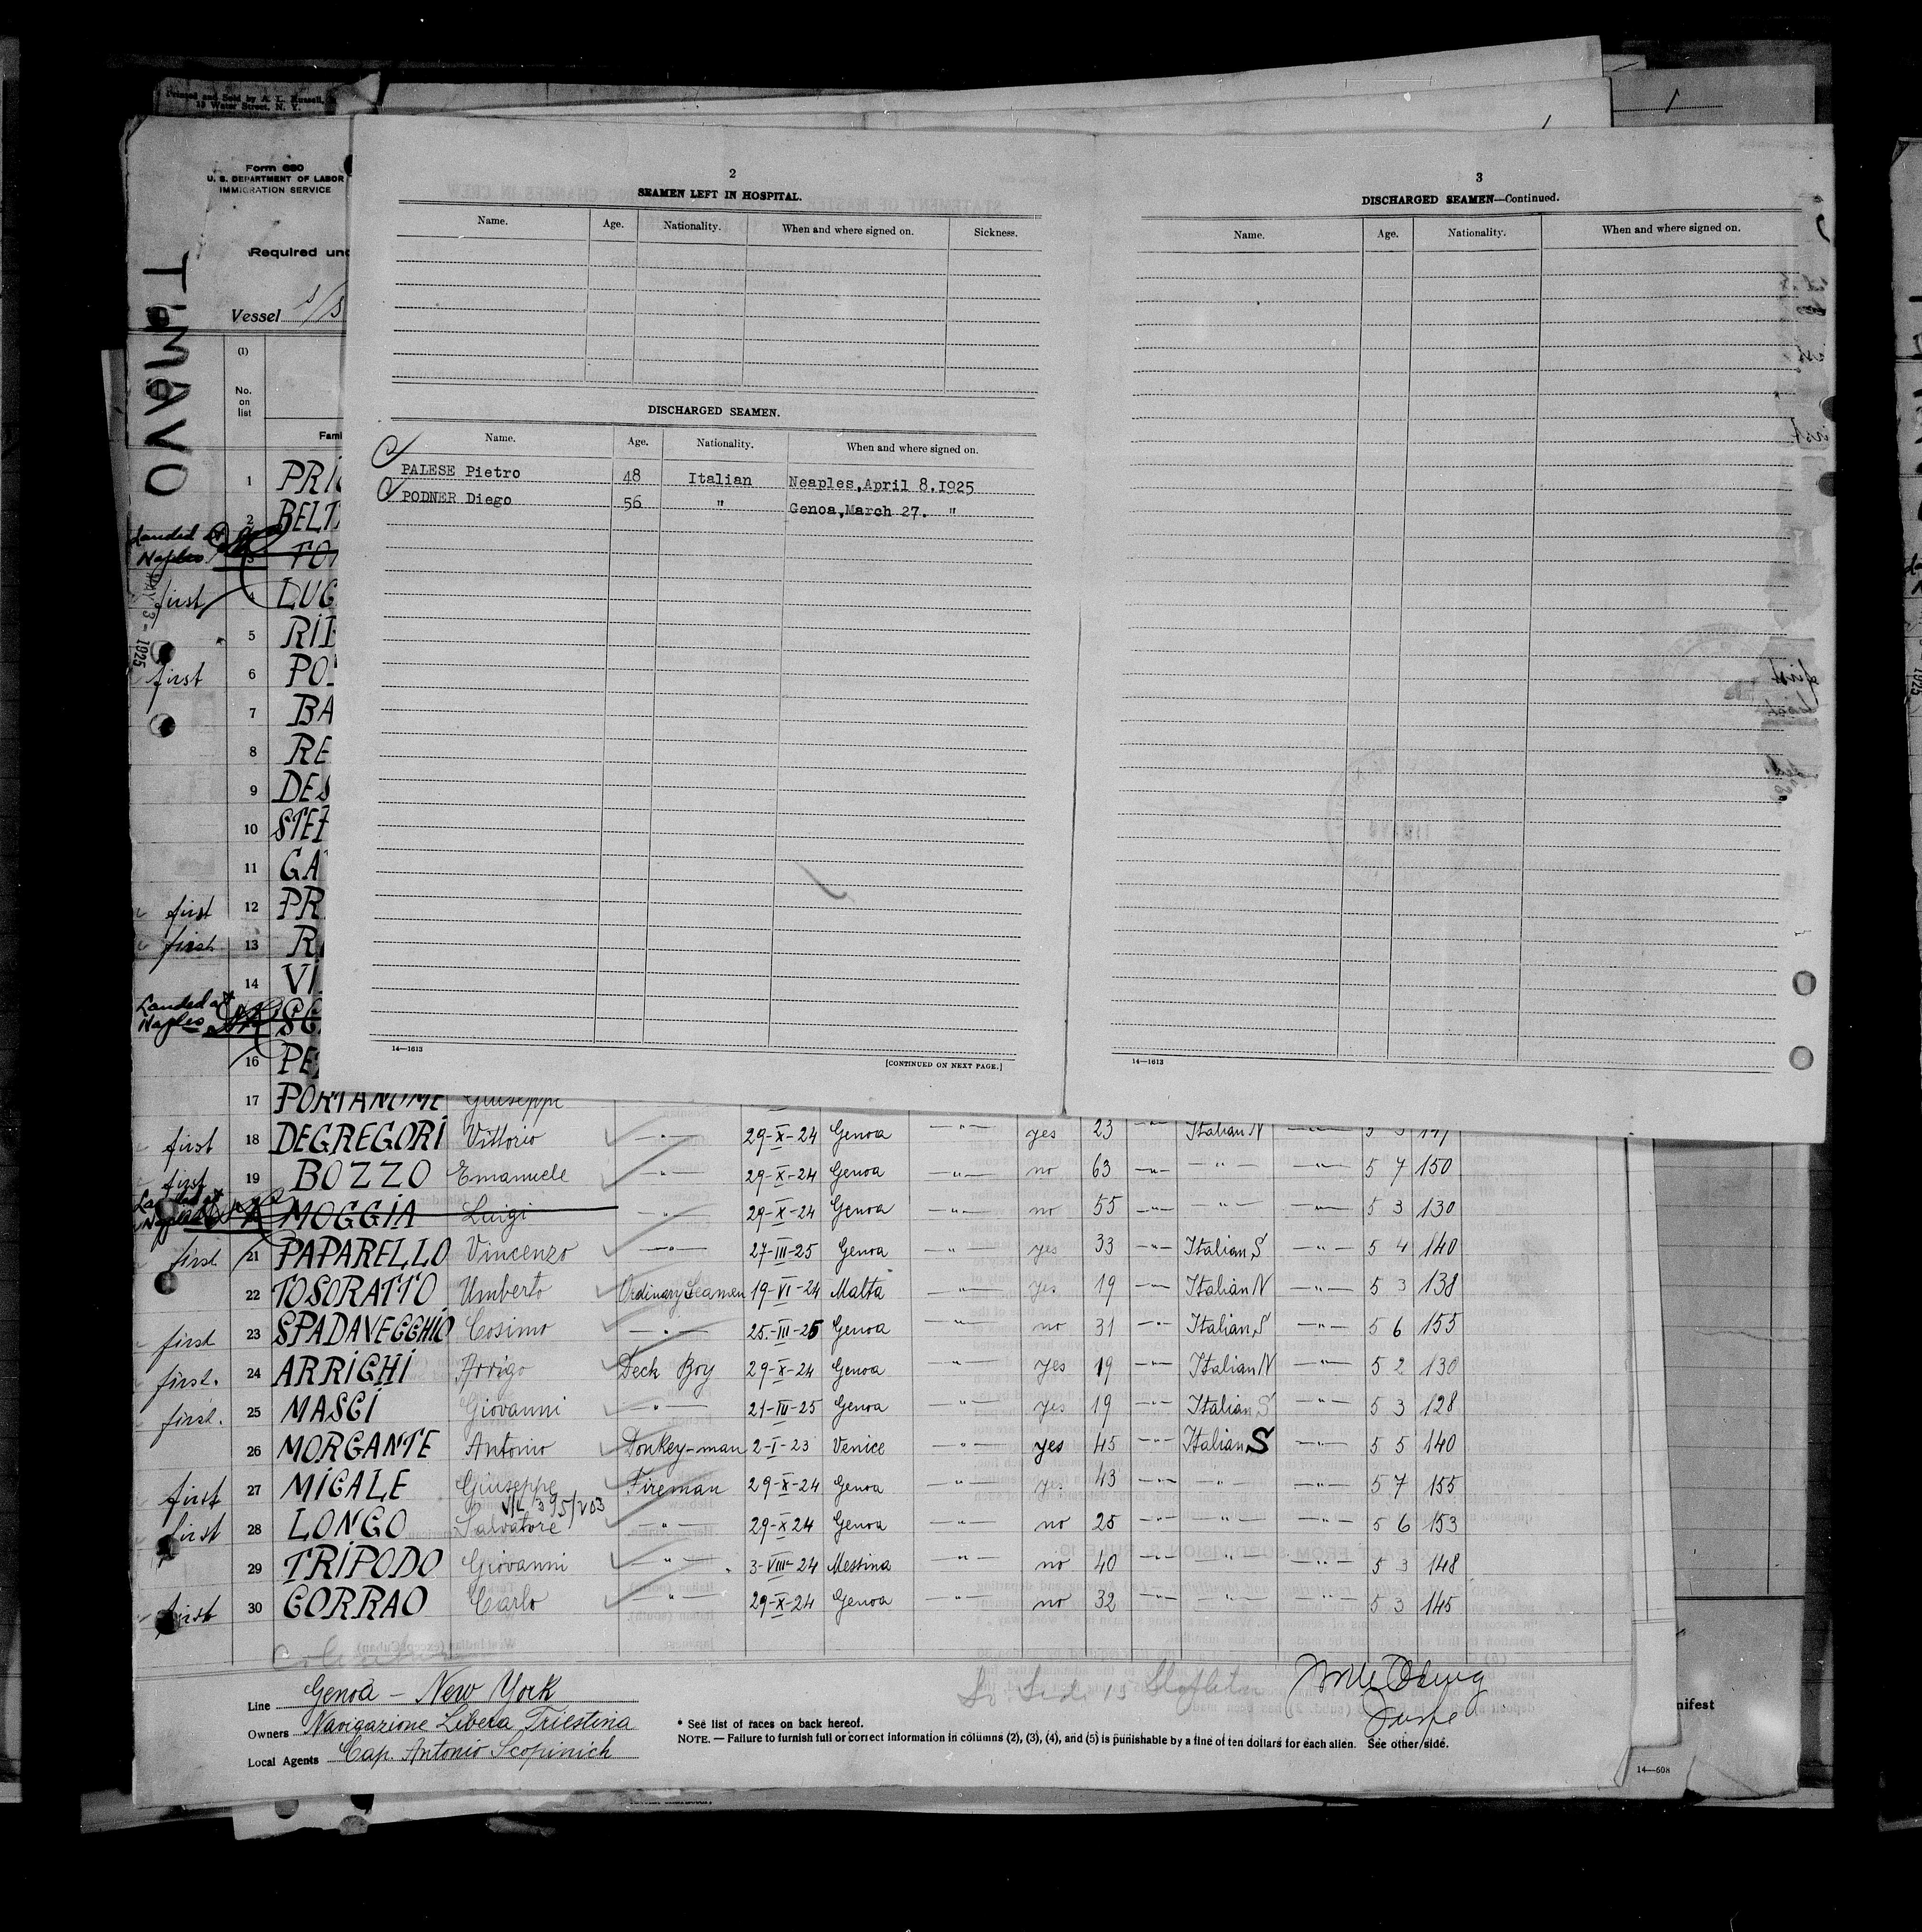 Printed and Sold by A. L. Russell,
12 Water Street, N. Y.
Form 680
U. S. DEPARTMENT OF LABOR
IMMIGRATION SERVICE
Required und
Vessel S/S
TIMAVO
(1)
No.
on
list
Fami
2
SEAMEN LEFT IN HOSPITAL.
Name. Age. Nationality. When and where signed on. Sickness.
DISCHARGED SEAMEN.
Name. Age. Nationality. When and where signed on.
PALESE Pietro 48 Italian Neaples,April 8.1925
PODNER Diego 56 " Genoa,March 27. "
14—1613
[CONTINUED ON NEXT PAGE.]
3
DISCHARGED SEAMEN—Continued.
Name. Age. Nationality. When and where signed on.
14—1613
1 PRI
2 BELT
Landed at
Naples 3 TO
MAY 3 - 1925
first 4 LUG
5 RI
first 6 PO
7 BA
8 RE
9 DES
10 STEF
11 GA
first 12 PR
first 13 RA
14 VI
Landed at
Naples SC
16 PE
17 PORTANOME Giuseppe
first 18 DEGREGORI Vittorio —"— 29-X-24 Genoa —"— yes 23 —"— Italian N —"— 5
first 19 BOZZO Emanuele —"— 29-X-24 Genoa —"— no 63 —"— —"— —"— 5 7 150
Landed at
Naples MOGGIA Luigi —"— 29-X-24 Genoa —"— no 55 —"— —"— —"— 5 3 130
first 21 PAPARELLO Vincenzo —"— 27-III-25 Genoa —"— yes 33 —"— Italian S —"— 5 4 140
22 TOSORATTO Umberto Ordinary Seamen 19-VI-24 Malta —"— yes 19 —"— Italian N —"— 5 3 138
first 23 SPADAVECCHIO Cosimo —"— 25-III-25 Genoa —"— no 31 —"— Italian S —"— 5 6 155
first. 24 ARRIGHI Arrigo Deck Boy 29-X-24 Genoa —"— yes 19 —"— Italian N —"— 5 2 130
first. 25 MASCI Giovanni —"— 21-III-25 Genoa —"— yes 19 —"— Italian S —"— 5 3 128
26 MORGANTE Antonio Donkey-man 2-I-23 Venice —"— yes 45 —"— Italian S —"— 5 5 140
first 27 MICALE Giuseppe Fireman 29-X-24 Genoa —"— yes 43 —"— —"— —"— 5 7 155
first 28 LONGO Salvatore —"— 29-X24 Genoa —"— no 25 —"— —"— —"— 5 6 153
29 TRIPODO Giovanni —"— 3-VIII-24 Messina —"— no 40 —"— —"— —"— 5 3 148
first 30 CORRAO Carlo —"— 29-X-24 Genoa —"— no 32 —"— —"— —"— 5 3 145
Line Genoa - New York
Owners Navigazione Libera Triestina
Local Agents Cap. Antonio Scopinich
* See list of races on back hereof.
NOTE. — Failure to furnish full or correct information in columns (2), (3), (4), and (5) is punishable by a fine of ten dollars for each alien. See other side.
nifest
14—608